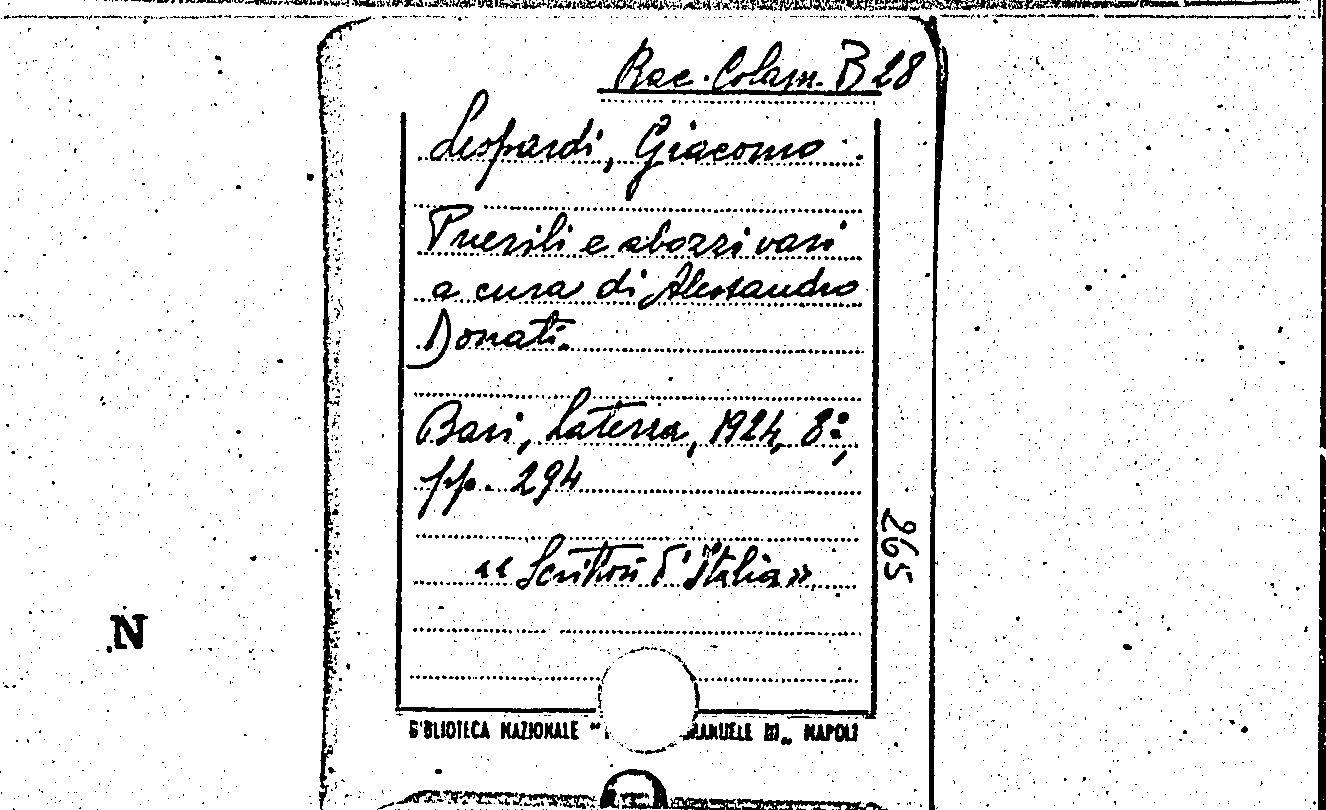 Rac. Colam. B 28
Leopardi, Giacomo.
Puerili e abozzi vari
a cura di Alessandro
Donati.
Bari, Laterza, 1924, 8°,
pp. 294
« Scrittori d'Italia »
265
N
BIBLIOTECA NAZIONALE " MANUELE III„ NAPOLI